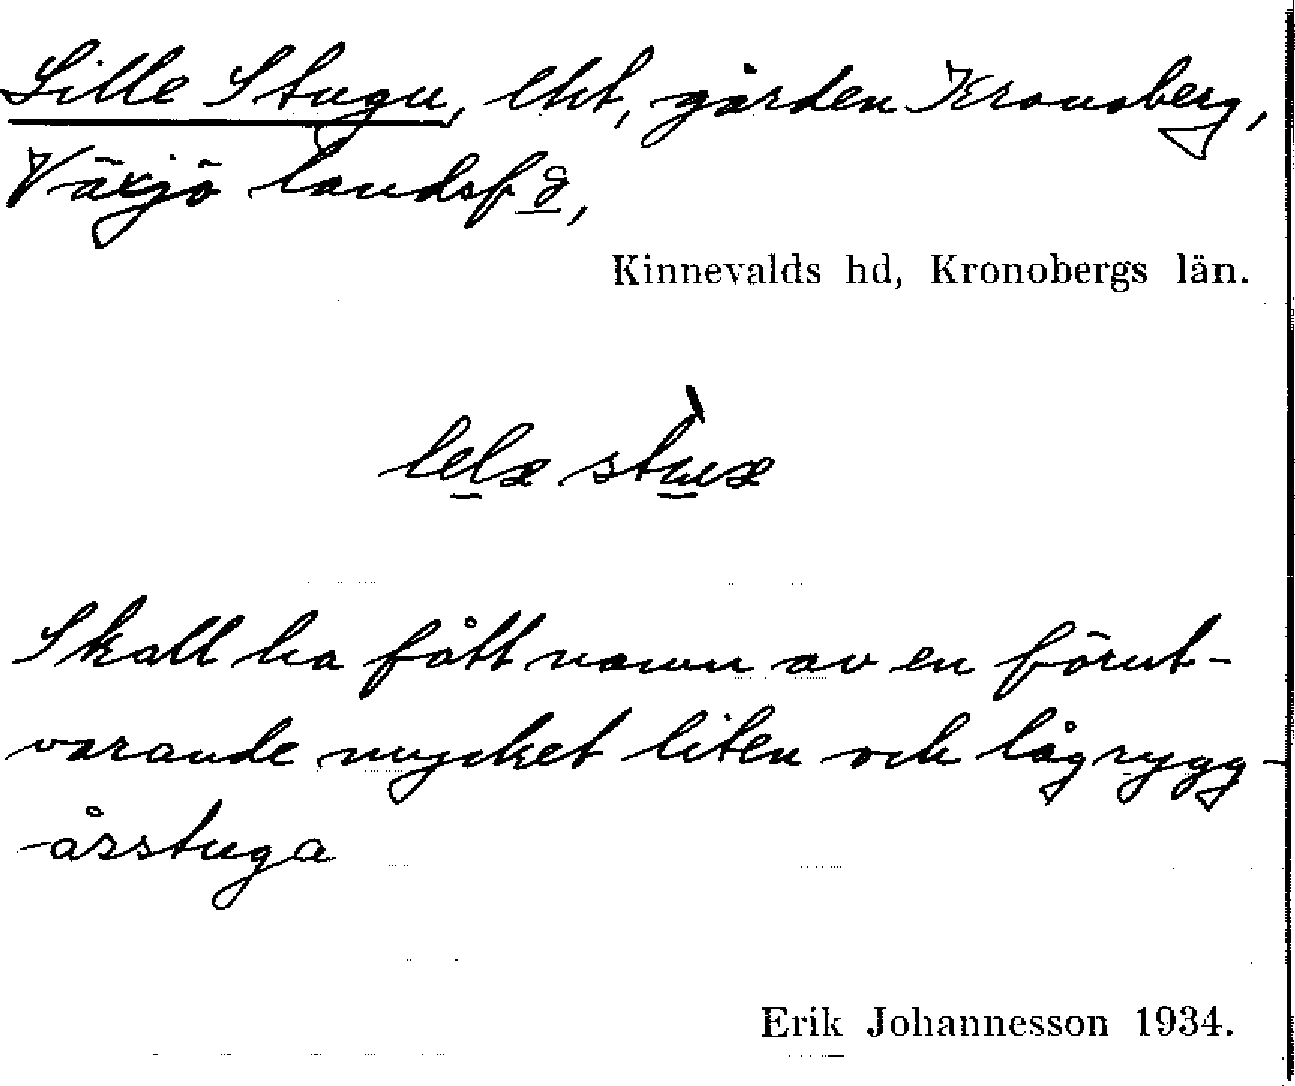 Lille Stugu, lht, gården Kronoberg,
Växjö landsf d,
Kinnevalds hd, Kronobergs län.
lelæ stuæ
Skall ha fått namn av en förut-
varande mycket liten och låg rygg-
åsstuga
Erik Johannesson 1934.